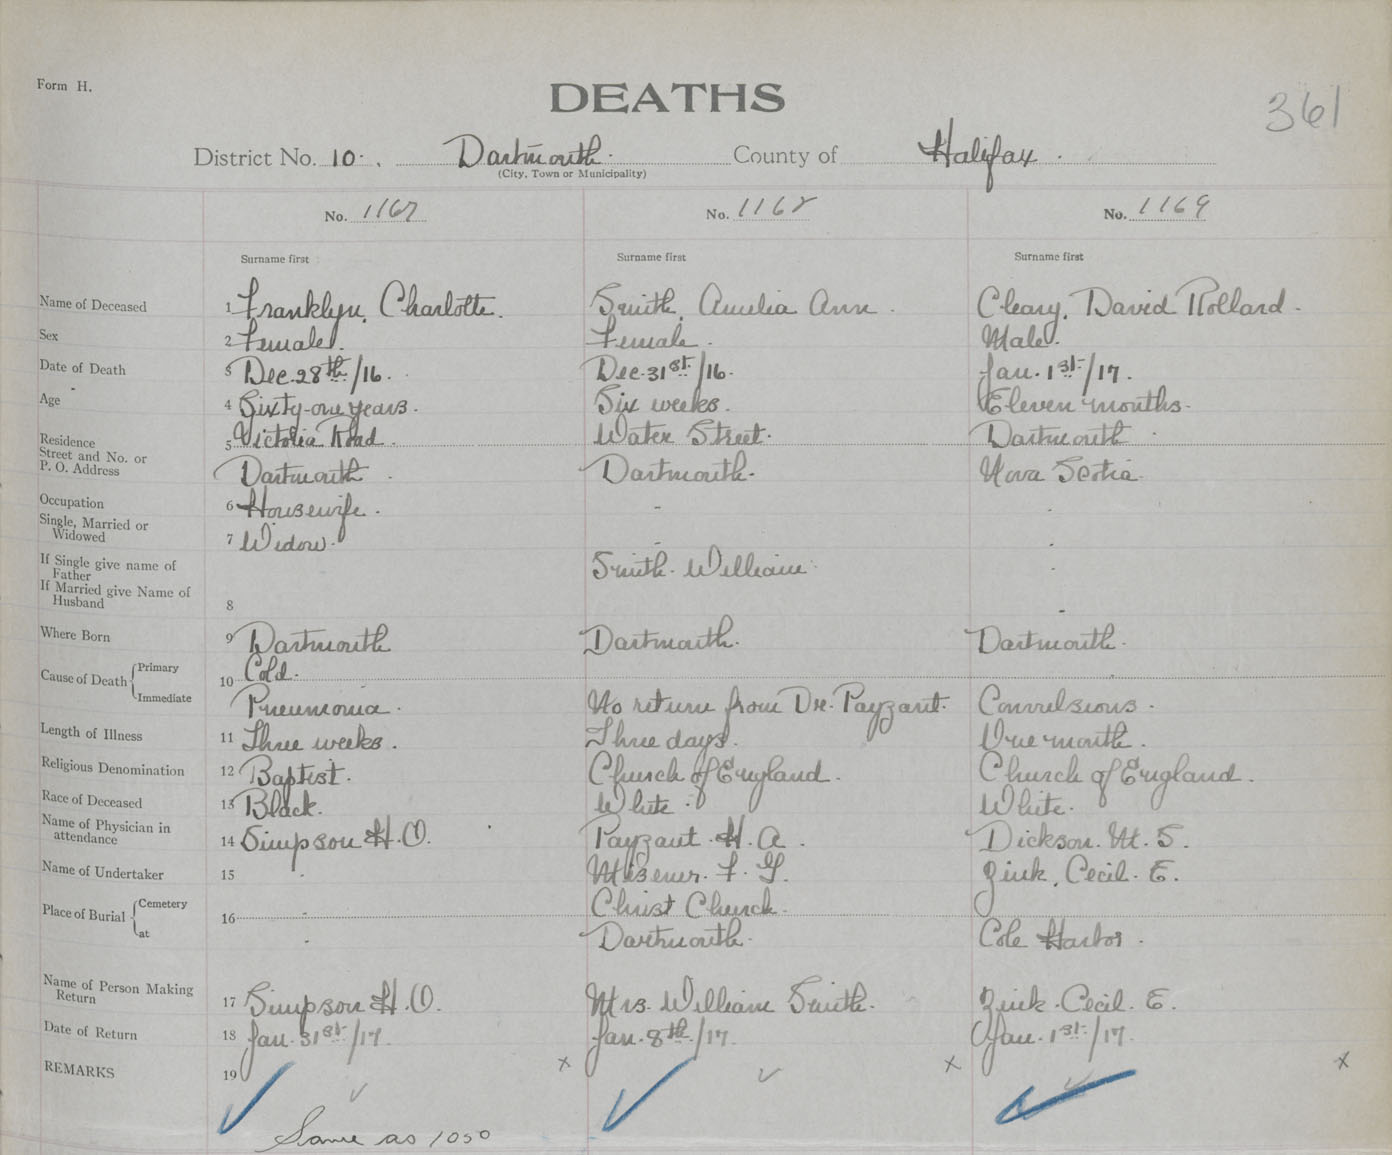 Form H.
DEATHS
361
District No. 10. Dartmouth. County of Halifax.
(City, Town or Municipality)
No. 1167 No. 1168 No. 1169
Surname first Surname first Surname first
Name of Deceased 1 Franklyn, Charlotte. Smith, Amelia Ann. Cleary, David Rolland.
Sex 2 Female. Female. Male.
Date of Death 3 Dec. 28th/16. Dec. 31st/16. Jan. 1st/17.
Age 4 Sixty-one years. Six weeks. Eleven months.
Residence Street and No. or P. O. Address 5 Victoria Road. Water Street. Dartmouth
Dartmouth Dartmouth. Nova Scotia.
Occupation 6 Housewife. - -
Single, Married or Widowed 7 Widow. - -
If Single give name of Father Smith. William -
If Married give Name of Husband 8 -
Where Born 9 Dartmouth Dartmouth. Dartmouth.
Cause of Death Primary 10 Cold.
Immediate Pneumonia. No return from Dr. Payzant. Convulsions.
Length of Illness 11 Three weeks. Three days. One month.
Religious Denomination 12 Baptist. Church of England. Church of England.
Race of Deceased 13 Black. White. White.
Name of Physician in attendance 14 Simpson H. O. Payzant. H. A. Dickson. M. S.
Name of Undertaker 15 - Misener. F. G. Zink, Cecil. E.
Place of Burial Cemetery 16 - Christ Church.
at - Dartmouth. Cole Harbor.
Name of Person Making Return 17 Simpson H. O. Mrs. William Smith. Zink. Cecil. E.
Date of Return 18 Jan. 31st/17. Jan. 8th/17. Jan. 1st/17.
REMARKS 19 x x x
Same as 1050